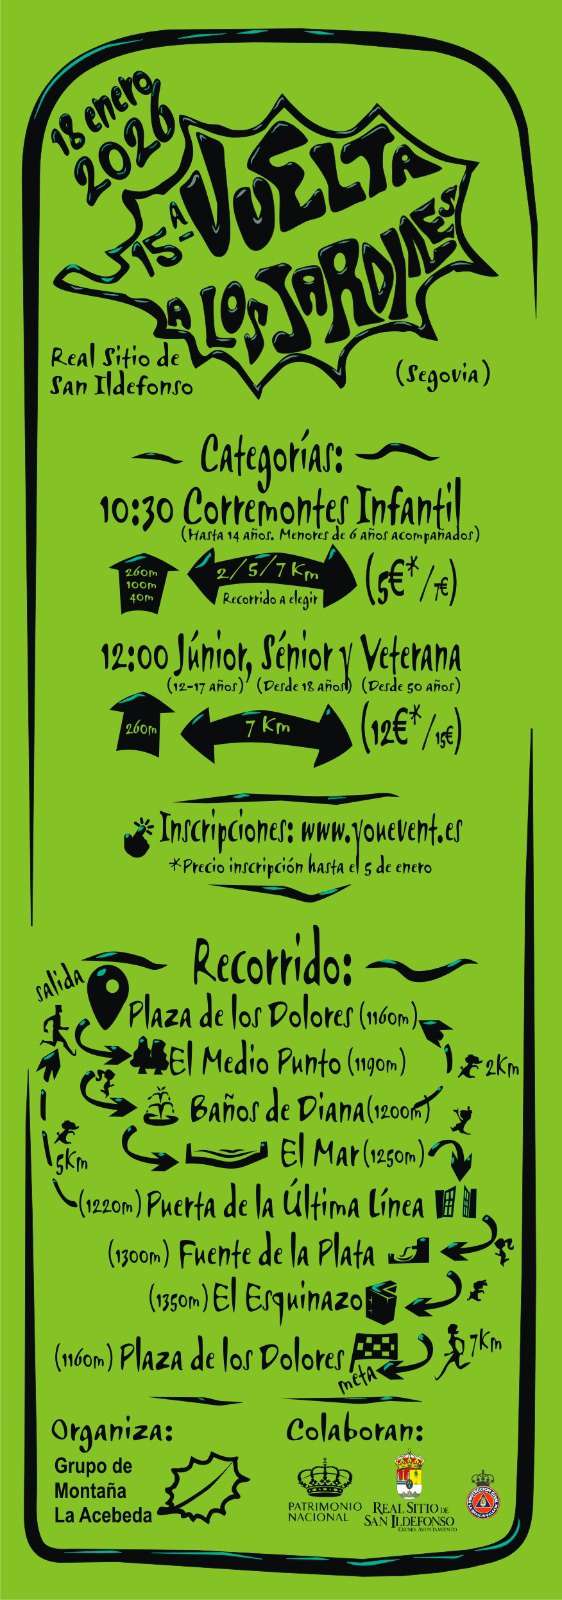 18 enero
2026
15ª VUELTA
A LOS JARDINES
Real Sitio de
San Ildefonso
(Segovia)
Categorías:
10:30 Corremontes Infantil
(Hasta 14 años. Menores de 6 años acompañados)
260m
100m
40m
2/5/7 Km
Recorrido a elegir
(5€*/7€)
12:00 Júnior, Sénior y Veterana
(12-17 años) (Desde 18 años) (Desde 50 años)
260m
7 Km
(12€*/15€)
Inscripciones: www.youevent.es
*Precio inscripción hasta el 5 de enero
Recorrido:
salida
Plaza de los Dolores (1160m)
El Medio Punto (1190m)
2Km
Baños de Diana (1200m)
El Mar (1250m)
5Km
(1220m) Puerta de la Última Línea
(1300m) Fuente de la Plata
(1350m) El Esquinazo
(1160m) Plaza de los Dolores
7Km
meta
Organiza:
Grupo de
Montaña
La Acebeda
Colaboran:
PATRIMONIO
NACIONAL
REAL SITIO DE
SAN ILDEFONSO